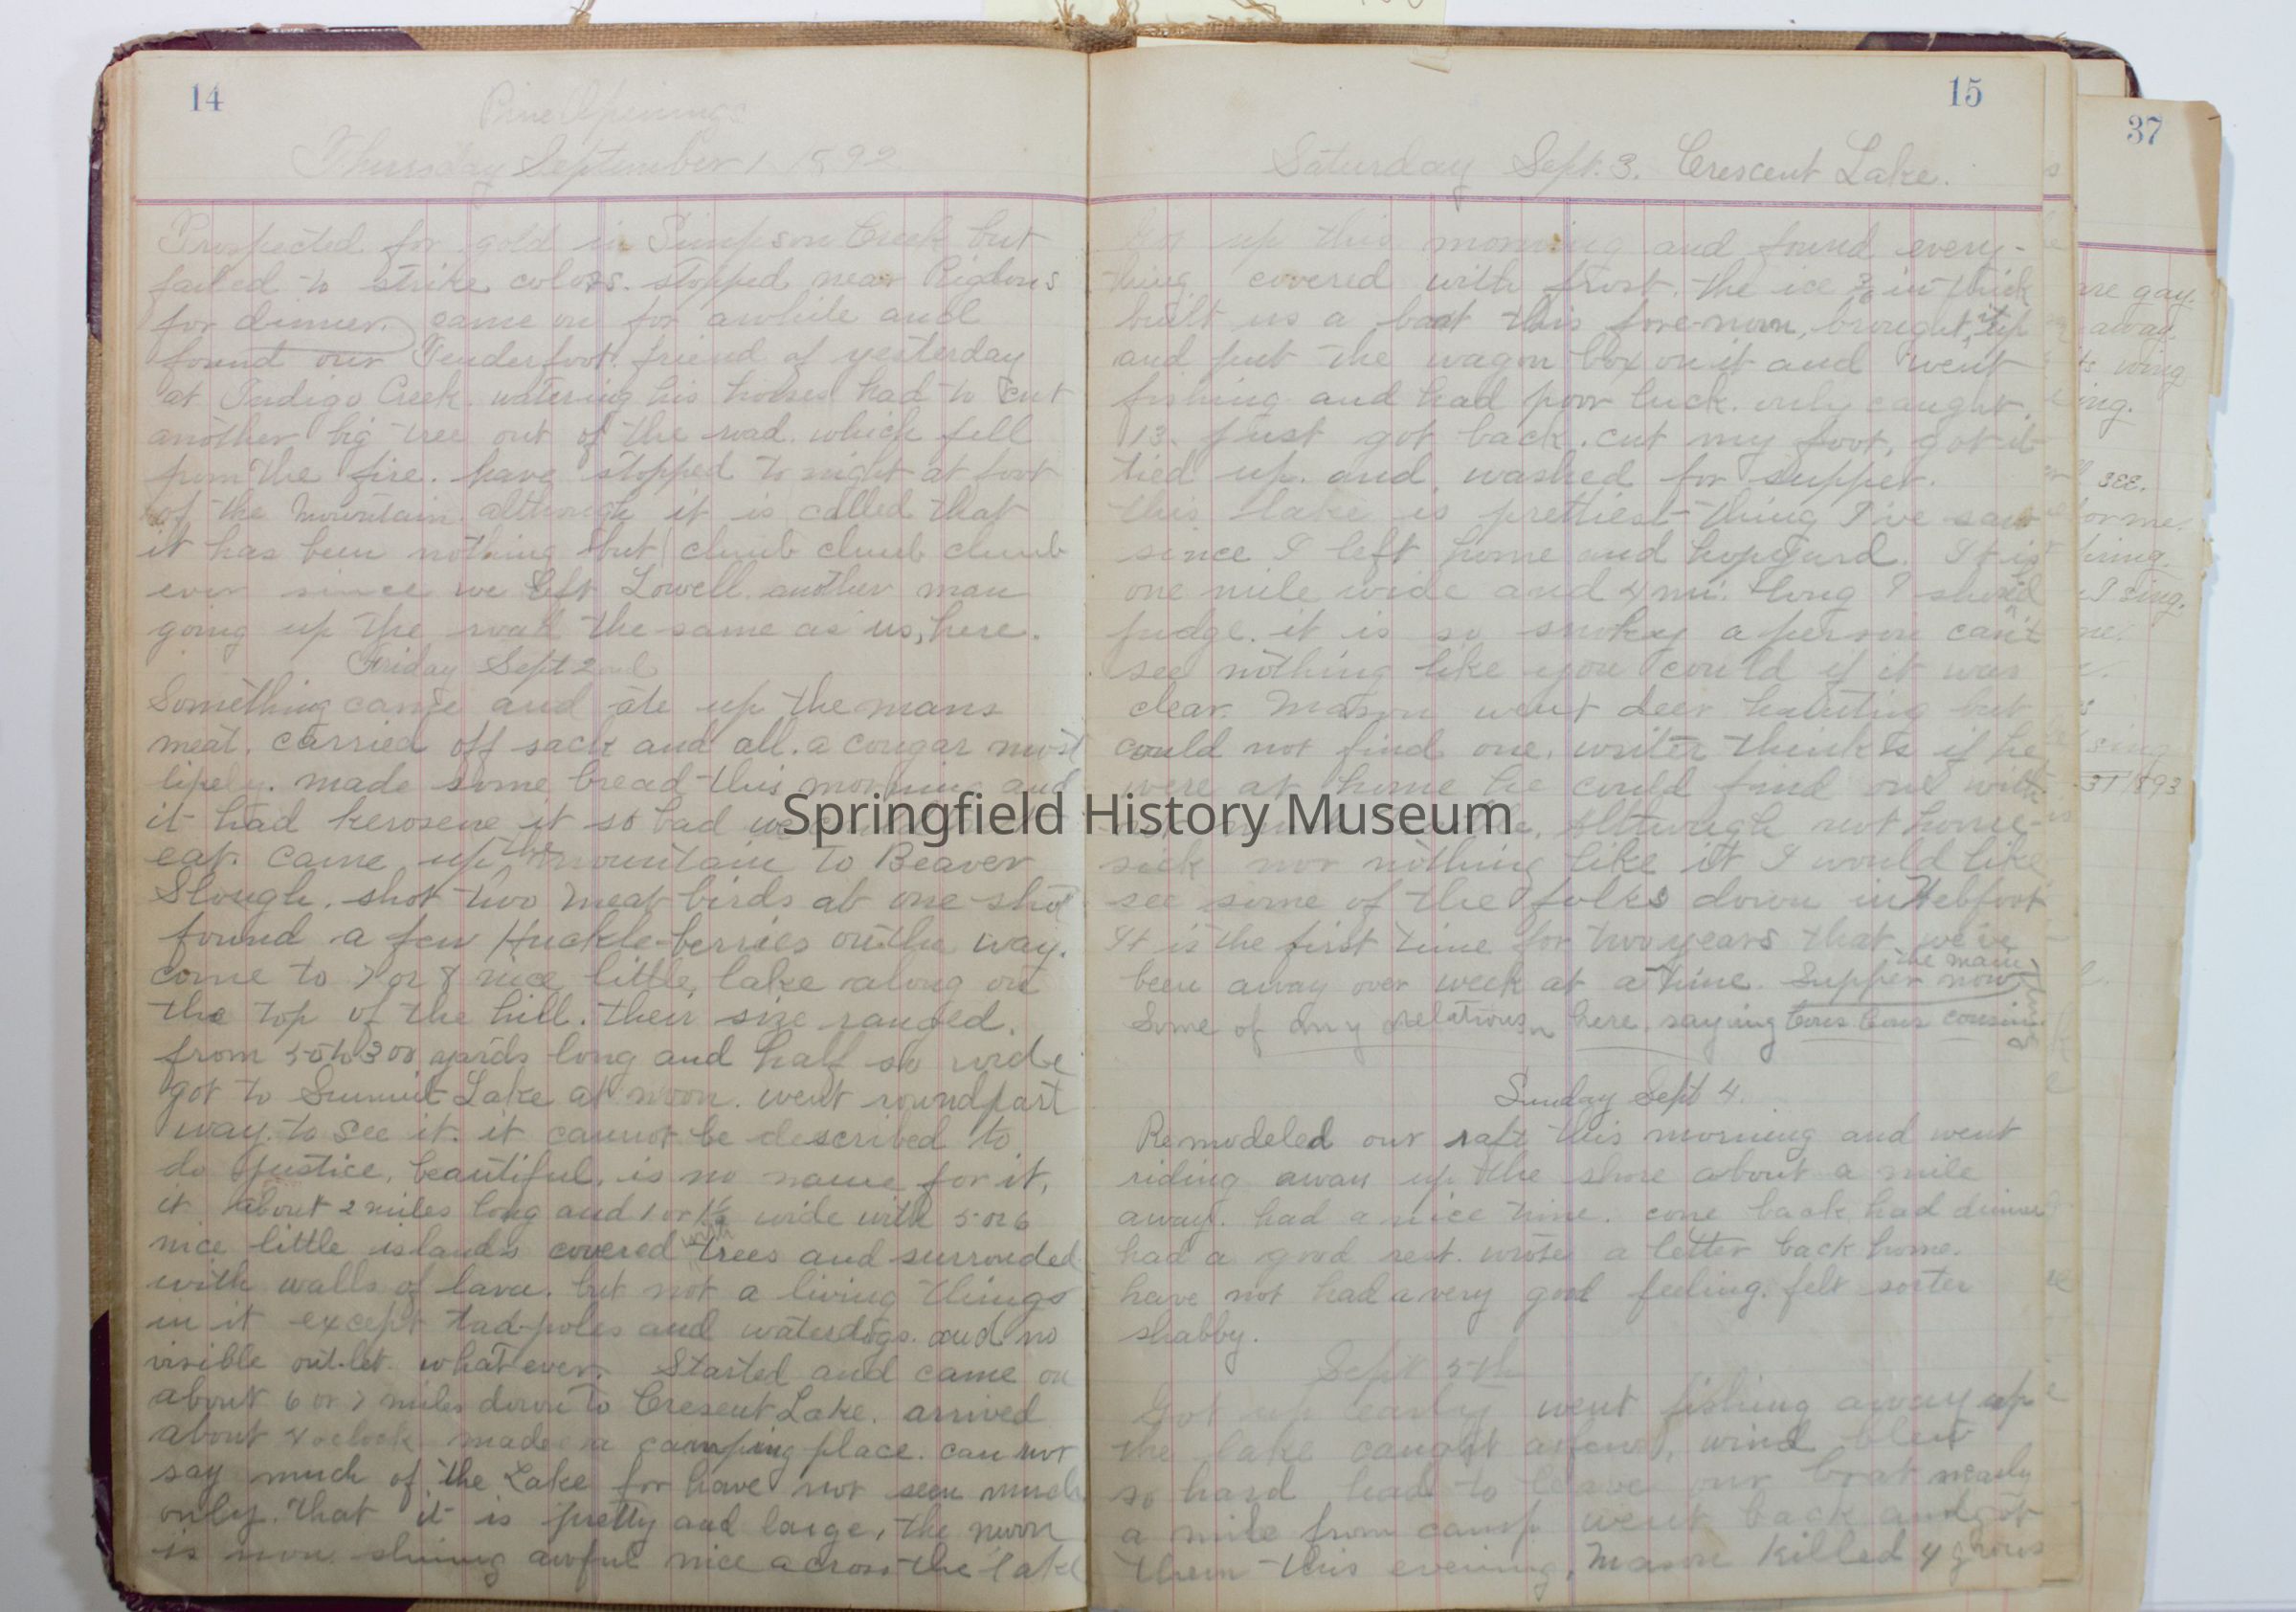 14
Pine Openings
Thursday September 1 1892
Prospected for gold in Simpson Creek but
failed to strike colors. stopped near Rigdons
for dinner. came on for awhile and
found our Tenderfoot friend of yesterday
at Indigo Creek. watering his horses had to cut
another big tree out of the road. which fell
from the fire. have stopped to night at foot
of the mountain although it is called that
it has been nothing but climb climb climb
ever since we left Lowell another man
going up the road the same as us, here.
Friday Sept 2nd
Something came and ate up the mans
meat. carried off sack and all. a cougar most
likely. made some bread this morning and
it had kerosene it so bad we
eat. came up the mountain to Beaver
Slough. shot two meat birds at one shot
found a few Huckle-berries on the way.
come to 7 or 8 nice little lake along on
the top of the hill. their size ranged.
from 50 to 300 yards long and half so wide
got to Summit Lake at noon. went round part
way. to see it. it cannot be described to
do justice, beautiful. is no name for it.
it about 2 miles long and 1 or 1½ wide with 5 or 6
nice little islands covered with trees and surrouded
with walls of lava. but not a living things
in it except tad-poles and waterdogs. and no
visible out-let what ever. Started and came on
about 6 or 7 miles down to Cresent Lake. arrived
about 4 oclock made a camping place. can not
say much of the Lake for have not seen much
only. that it is pretty and large, the moon
is now shining awful nice across the lake
15
Saturday Sept. 3. Crescent Lake.
Got up this morning and found every-
thing covered with frost. the ice in thick
built us a boat this fore-noon, brought it up
and put the wagon box on it and went
fishing and had poor luck. only caught
13. just got back. cut my foot, got it
tied up. and washed for supper.
this lake is prettiest thing I've saw
since I left home and hopyard. It is
one mile wide and 4 mi. long I should
judge. it is so smoky a person can't
see nothing like you could if it was
clear. Mason went deer hunting but
could not find one. writer thinks if he
were at home he could find one with
Although not home-
sick nor nothing like it I would like
see some of the folks down in Webfoot
It is the first time for two years that we've
been away over week at a time. Supper now the main
Some of my relation here. saying cousin
Sunday Sept 4.
Remodeled our raft this morning and went
riding away up the shore about a mile
away. had a nice time. cone back had dinner
had a good rest. wrote a letter back home.
have not had a very good feeling. felt sorter
shabby.
Sept 5th
Got up early went fishing away up
the lake caught a few, wind blew
so hard had to leave our boat nearly
a mile from camp went back and got
them this evening, Mason killed 4 grous
37
are gay.
away.
wing
ing.
see.
for me.
I sing.
me.
sing
31 1893
Springfield History Museum